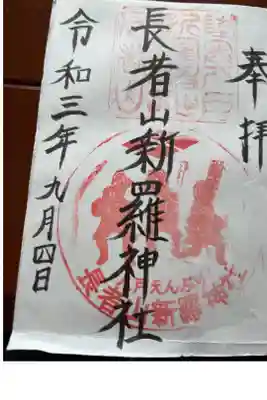 奉拝
長者山新羅神社
令和三年九月四日
長者山新羅神社